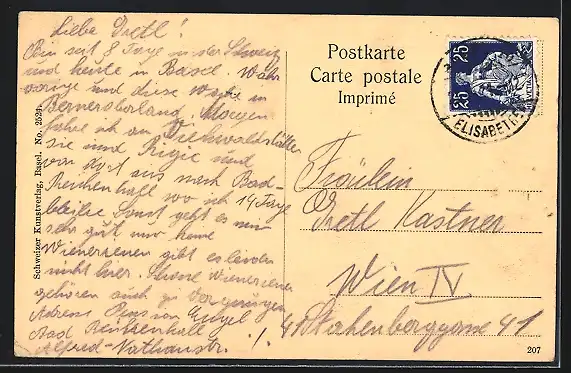 Liebe Gretl!
Bin seit 8 Tage in der Schweiz
und heute in Basel. Wäh-
vorige und diese Woche in
Berneroberland. Morgen
fahre ich am Vierwaldstätter
sie und Rigie und
von dort aus nach Bad-
Reichenhall wo ich 14 Tage
bleibe. Sonst geht es mir
sehr gut nur keine
Wienerinnen gibt es leider
nicht hier.
gehören auch zu
Adress Pension
Bad Reichenhall
Alfred-Nathanstr. !
Schweizer Kunstverlag, Basel. No. 2529.
Postkarte
Carte postale
Imprimé
25 25
ELISABETHEN
Fräulein
Gretl Kastner
Wien IV
Starhemberggasse 41
207